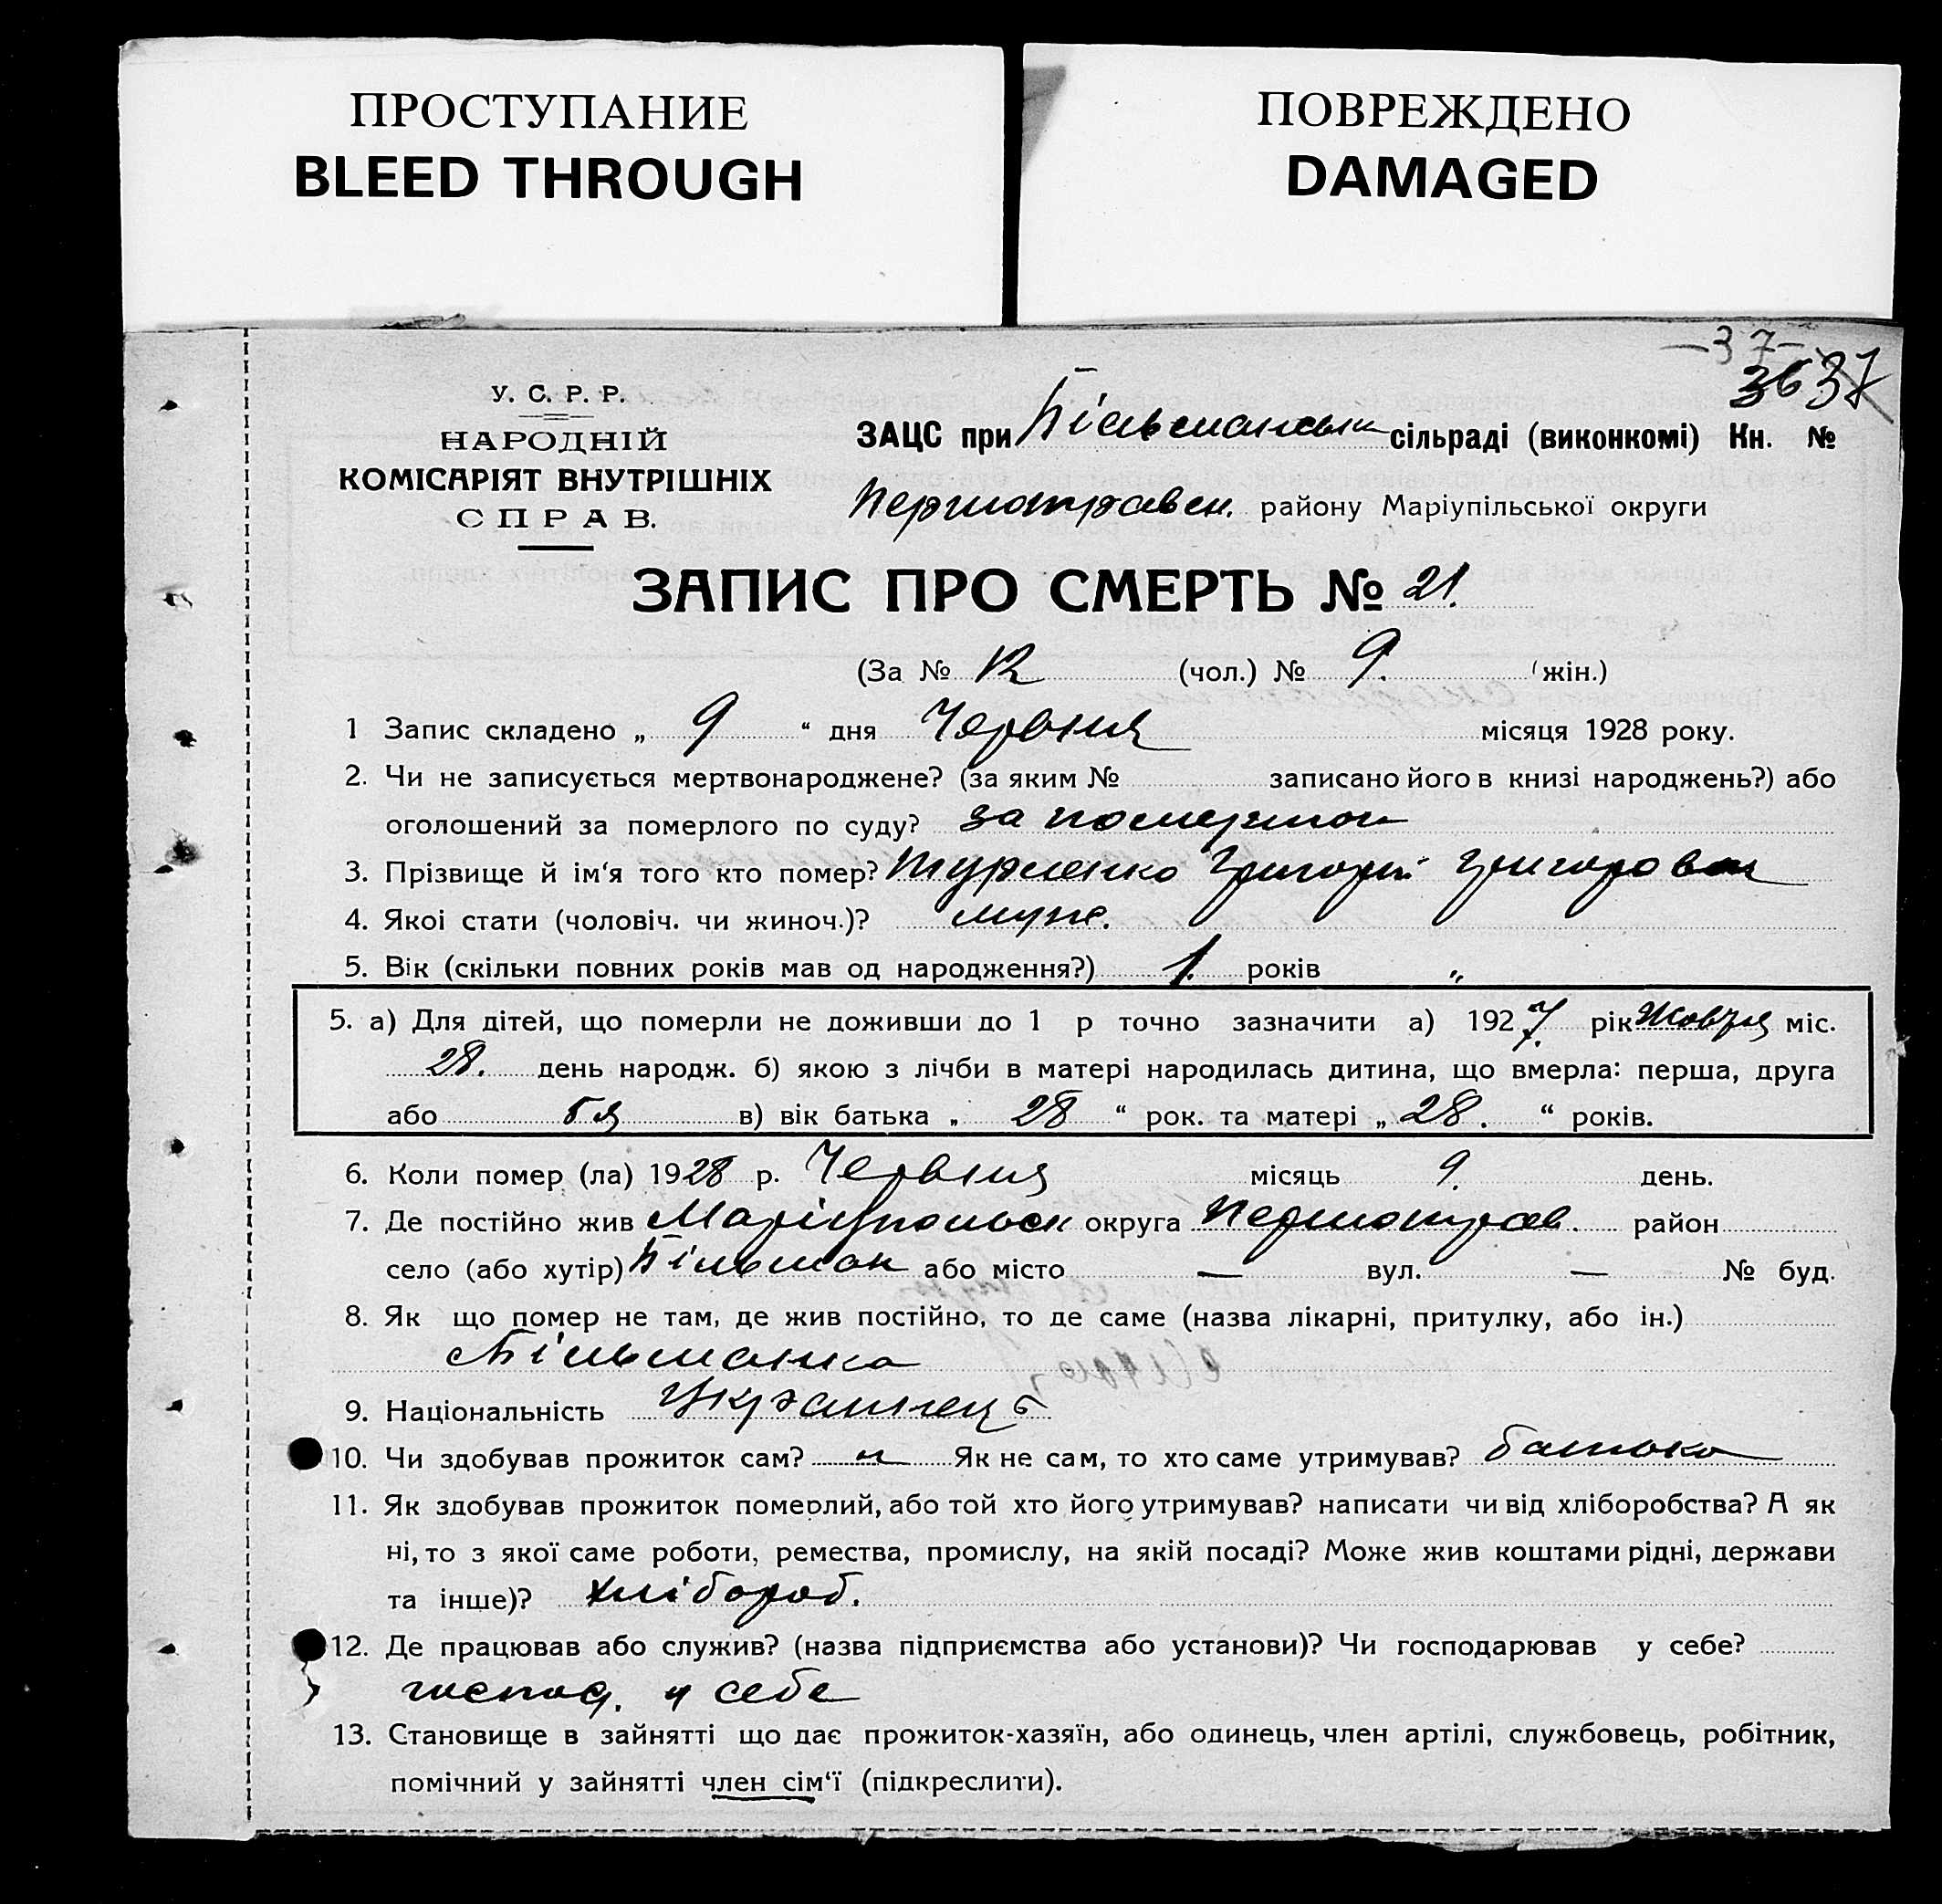 ПРОСТУПАНИЕ
BLEED THROUGH
ПОВРЕЖДЕНО
DAMAGED
—37—
3637
У. С. Р. Р.
НАРОДНІЙ
КОМІСАРІЯТ ВНУТРІШНІХ
СПРАВ.
ЗАЦС при Більманськ сільраді (виконкомі) Кн. №
Першотравен. району Маріупільської округи
ЗАПИС ПРО СМЕРТЬ № 21.
(За № 12 (чол.) № 9. (жін.)
1 Запис складено „ 9 “ дня Червня місяця 1928 року.
2. Чи не записується мертвонароджене? (за яким № записано його в книзі народжень?) або
оголошений за померлого по суду? за
3. Прізвище й ім‘я того кто помер? Григорій Григоров
4. Якої стати (чоловіч. чи жиноч.)? муж.
5. Вік (скільки повних років мав од народження?) 1. років „
5. а) Для дітей, що померли не доживши до 1 р точно зазначити а) 1927. рік Жовтня міс.
28. день народж. б) якою з лічби в матері народилась дитина, що вмерла: перша, друга
або 5я в) вік батька „ 28 “ рок. та матері „ 28. “ років.
6. Коли помер (ла) 1928 р. Червня місяць 9. день.
7. Де постійно жив Маріупольск округа Першотрав. район
село (або хутір) Більман або місто — вул. — № буд.
8. Як що помер не там, де жив постійно, то де саме (назва лікарні, притулку, або ін.)
Більманка
9. Національність Украинець
10. Чи здобував прожиток сам? н Як не сам, то хто саме утримував? батько
11. Як здобував прожиток померлий, або той хто його утримував? написати чи від хліборобства? А як
ні, то з якої саме роботи, ремества, промислу, на якій посаді? Може жив коштами рідні, держави
та інше)? хлібороб.
12. Де працював або служив? (назва підприємства або установи)? Чи господарював у себе?
господ. у себе
13. Становище в зайнятті що дає прожиток-хазяїн, або одинець, член артілі, службовець, робітник,
помічний у зайнятті член сім‘ї (підкреслити).